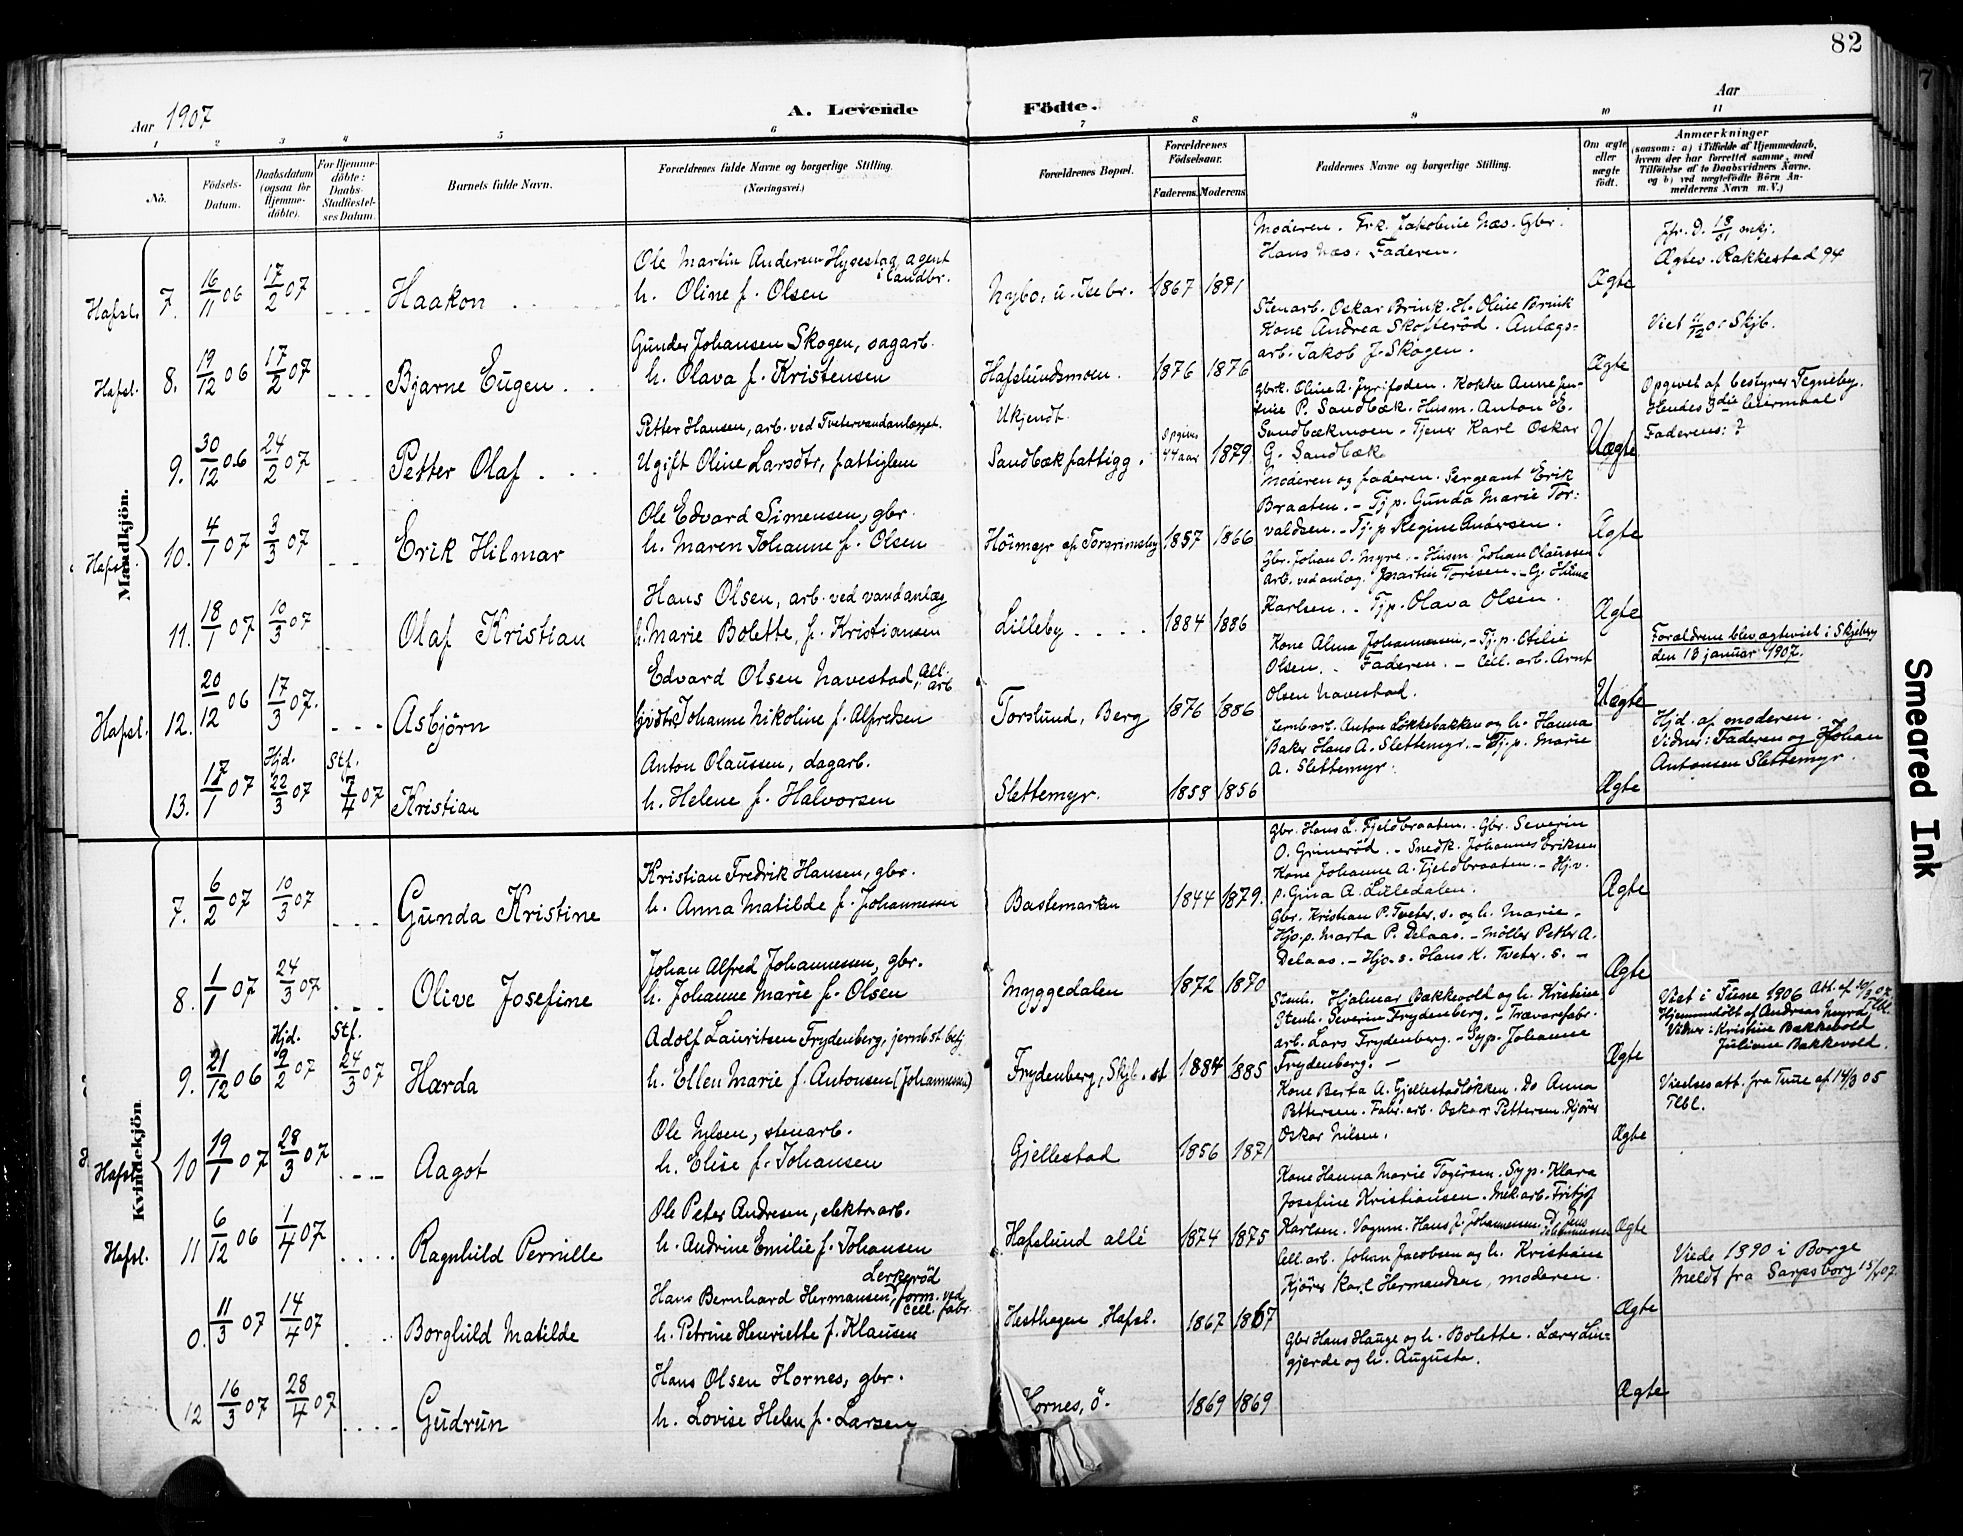 82
Aar 1907
A. Levende
Födte.
Aar
1
2
3
4
5
6
7
8
9
10
11
No.
Födsels-
Datum.
Daabsdatum
(ogsaa for
Hjemme-
döbte).
For Hjemme-
döbte:
Daabs-
Stadfæstel-
ses Datum.
Barnets fulde Navn.
Forældrenes fulde Navne og borgerlige Stilling.
(Næringsvei.)
Forældrenes Bopæl.
Forældrenes
Födselsaar.
Faderens.
Moderens.
Faddernes Navne og borgerlige Stilling.
Om ægte
eller
uægte
födt.
Anmærkninger
(saasom: a) i Tilfælde af Hjemmedaab,
hvem der har forrettet samme, med
Tilföielse af to Daabsvidners Navne,
og b) ved uægtefödte Börn An-
melderens Navn m. V.)
Mandkjön.
Hafsl. 7. 16/11 06 17/2 07 Haakon
Ole Martin Andersen Hysestad, agent
h. Oline f. Olsen
i landbr.
Nybo, u. Isebr. 1867 1871
Moderen. Frk. Jakobine Næs. Gbr.
Hans Næs. Faderen.
Ægte
Jfr. D. 18/01 mkj.
Ægtev. Rakkestad 94
Hafsl. 8. 19/12 06 17/2 07 Bjarne Eugen
Gunder Johansen Skogen, sagarb.
h. Olava f. Kristensen
Hafslundsmoen. 1876 1876
Stenarb. Oskar Brink. H. Oline Brink
Kone Andrea Skolterød. Anlægs-
arb. Jakob J. Skogen.
Ægte
9. 30/12 06 24/2 07 Petter Olaf
Petter Hansen, arb. ved Tvetervandanlægget.
Ugift Oline Larsdtr, fattiglem
Ukjendt.
Sandbæk fattigg. Opgives 44 aar 1879.
Sandbækmoen. Tjener Karl Oskar
G. Sandbæk
Uægte
Opgivet af bestyrer Tegneby.
Hendes 3die leiermaal
Faderens: ?
Hafsl. 10. 4/1 07 3/3 07 Erik Hilmar
Ole Edvard Simensen, gbr.
h. Maren Johanne f. Olsen
Höimyr af Torgrimsby 1857 1866
Moderen og faderen. Sergeant Erik
Braaten. - Tj.p. Gunda Marie Tor:
valdsen. - Tj.p Regine Andersen.
Ægte
11. 18/1 07 10/3 07 Olaf Kristian
Hans Olsen, arb. ved vandanlæg
h. Marie Bolette, f. Kristiansen
Lilleby 1884 1886
Gbr. Johan O. Myre. - Husm. Johan Olaussen
Arb. ved anlæg. Martin Toresen. - G.
Karlsen. - Tjp. Olava Olsen.
Ægte
Forældrene blev ægteviet i Skjeberg
den 13 januar 1907.
Hafsl. 12. 20/12 06 17/3 07. Asbjørn
Edvard Olsen Navestad, cell. arb
Johanne Nikoline f. Alfredsen
Torslund, Berg 1876 1886
Olsen. - Faderen. - Cell. arb. Arnt
Olsen Navestad.
Uægte
13. 17/1 07 Hjd. 22/3 07 Stf. 7/4 07 Kristian
Anton Olaussen, dagarb.
h. Helene f. Halvorsen
Slettemyr. 1858 1856
Jernbarb. Anton Løkkebakken og h. Hanna
Baker Hans A. Slettemyr. - Tj.p. Marie
A. Slettemyr.
Ægte
Hjd. af moderen.
Vidner: Faderen og Johan
Antonsen Slettemyr.
Kvindekjön
7. 6/2 07 10/3 07 Gunda Kristine
Kristian Fredrik Hansen, gbr.
h. Anna Matilde f. Johannessen
Bastemarken 1844 1879.
Gbr. Hans L. Fjeldbraaten. Gbr. Severin
O. Grimerød. - Snedk. Johannes Eriksen
Kone Johanne A. Fjeldbraaten. - Hj.v.
p. Gina A. Lilledalen.
Ægte
8. 1/1 07 24/3 07 Olive Josefine
Johan Alfred Johannessen, gbr.
h. Johanne Marie f. Olsen
Myggedalen 1872 1870
Gbr. Kristian P. Tveter, s. og h. Marie.
Hjv.p. Marta P. Delaas. - Møller Petter A.
Delaas. - Hjv. s. Hans K. Tveter. s. -
Ægte
9. 21/12 06 Hjd. 9/2 07 Stf. 24/3 07 Harda
Adolf Lauritsen Frydenberg, jernb.st betj
h. Ellen Marie f. Antonsen (Johannessen)
Frydenberg, Skjb. st 1884 1885
Stenh. Hjalmar Bakkevold og h. Kristine
Stenh. Severin Frydenberg. - Trævarefabr.
arb. Lars Frydenberg. - Syp. Johanne
Frydenberg. -
Ægte
Viet i Tune 1906 Att. af
Hjemmedöbt af Andreas Myrd
Vidner: Kristine Bakkevold
Juliane Bakkevold.
Hafsl. 10 19/1 07 28/3 07 Aagot
Ole Nilsen, stenarb.
h. Elise f. Johansen
Gjellestad 1856 1871
Kone Berta A. Gjellestadløkken. Do Anna
Pettersen. Fabr. arb. Oskar Pettersen. Kjører
Oskar Nilsen.
Ægte
Vielsesatt. fra Tune af 14/3 05
Tlbl.
Hafsl. 11 6/12 06 1/4 07 Ragnhild Pernille
Ole Peter Andresen, elektr arb.
h. Andrine Emilie f. Johansen
Hafslund allé 1874 1875
Kone Hanna Marie Togersen. Syp. Klara
Josefine Kristiansen. Mek. arb. Fritjof
Karlsen. Vognm. Hans J. Johannessen.
Ægte
0. 11/3 07 14/4 07 Borghild Matilde
Hans Bernhard Hermansen Lerkerød, form. ved cell. fabr.
h. Petrine Henriette f. Klausen
Hesthagen Hafsl. 1867 1867
Cell arb. Johan Jacobsen og h. Kristiane
Kjører Karl Hermansen, moderen.
Ægte
Viede 1890 i Borge
Meldt fra Sarpsborg 15/4 07.
12 16/3 07 28/4 07 Gudrun
Hans Olsen Hornes, gbr.
h. Lovise Helen f. Larsen
Hornes, ö. 1869 1869
Gbr Hans Hauge og h. Bolette. Lærer Lin-
gjerde og h. Augusta.
Ægte
Smeared Ink
7